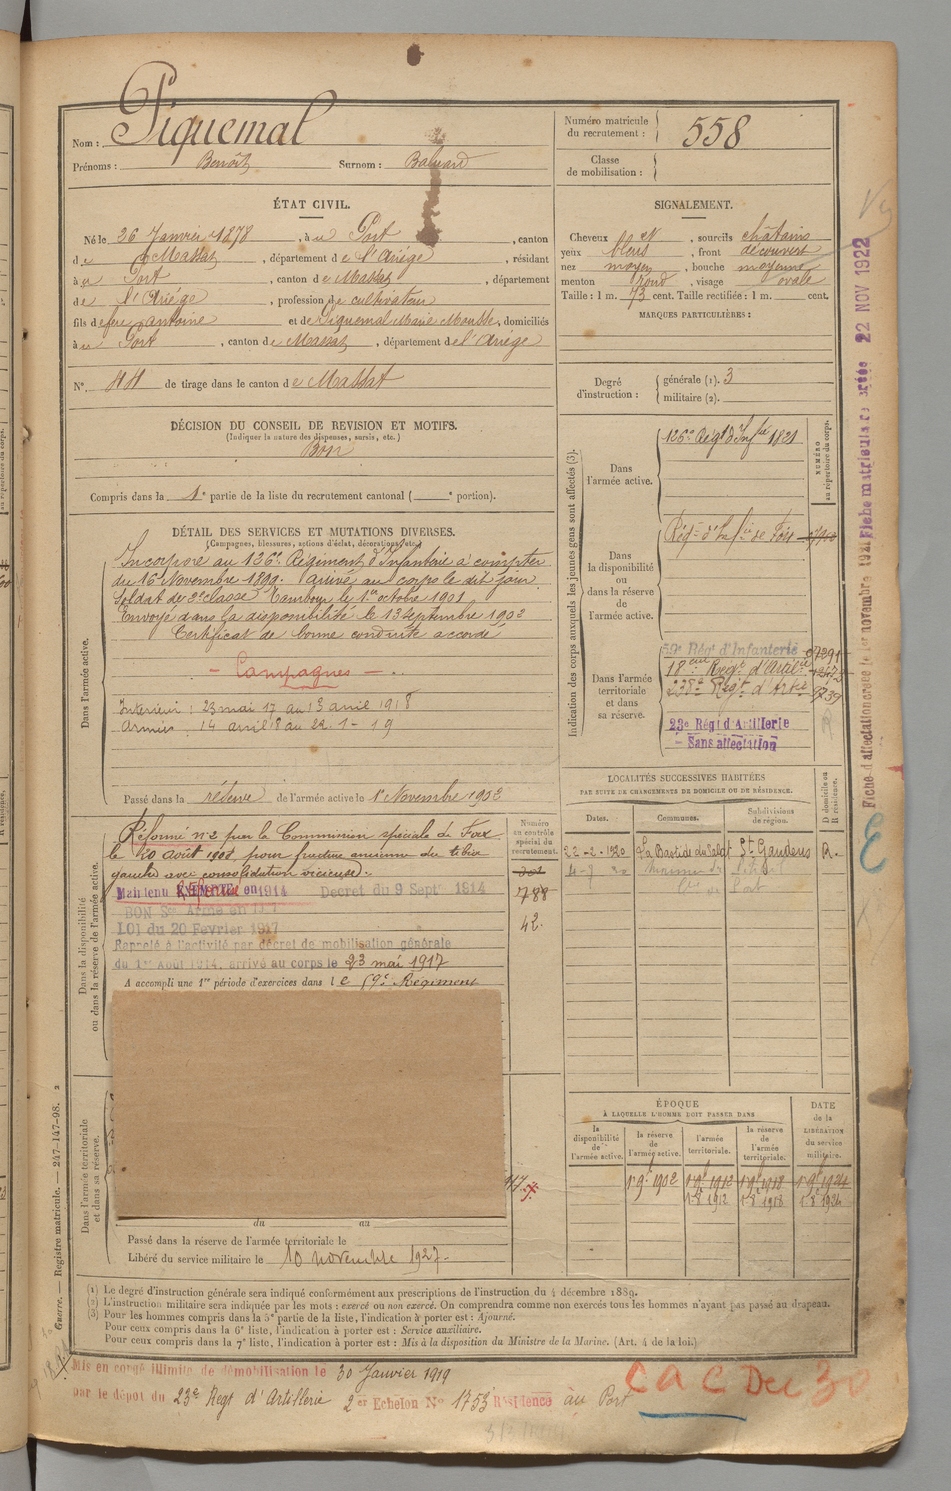 Nom : Piquemal
Prénoms : Benoît Surnom : Baluard
ÉTAT CIVIL.
Né le 26 Janvier 1878, à Port, canton
de Massat, département de l'Ariège, résidant
à Port, canton de Massat, département
de l'Ariège, profession de cultivateur
fils de feu Antoine et de Piquemal Marie, domiciliés
à Port, canton de Massat, département de l'Ariège
N° 44 de tirage dans le canton de Massat
DÉCISION DU CONSEIL DE REVISION ET MOTIFS.
(Indiquer la nature des dispenses, sursis, etc.)
Bon
Compris dans la 1e partie de la liste du recrutement cantonal ( e portion).
DÉTAIL DES SERVICES ET MUTATIONS DIVERSES.
(Campagnes, blessures, actions d'éclat, décorations, etc.)
Dans l'armée active.
Incorporé au 126e Régiment d'Infanterie à compter
du 16 Novembre 1899. Arrivé au corps le dit jour
Soldat de 2e classe Tambour le 1er octobre 1901
Envoyé dans la disponibilité le 13 septembre 1902
Certificat de bonne conduite accordé
- Campagnes -
Intérieur : 23 mai 17 au 13 avril 1918
Armées : 14 avril 18 au 22-1-19
Passé dans la réserve de l'armée active le 1er Novembre 1902
Dans la disponibilité
ou dans la réserve de l'armée active.
Réformé n°2 par la Commission spéciale de Foix
le 20 août 1908 pour fracture ancienne du tibia
gauche avec consolidation vicieuse.
Maintenu Réformé en 1914 Decret du 9 Sept 1814
BON Sce Armé en 1917
LOI du 20 Fevrier 1917
Rappelé à l'activité par décret de mobilisation générale
du 1er Août 1914, arrivé au corps le 23 mai 1917
A accompli une 1re période d'exercices dans le 59e Régiment
Numéro
au contrôle
spécial du
recrutement.
788
42.
Dans l'armée territoriale
et dans sa réserve.
du au
Passé dans la réserve de l'armée territoriale le
Libéré du service militaire le 10 novembre 1927.
Numéro matricule
du recrutement : 558
Classe
de mobilisation :
SIGNALEMENT.
Cheveux , sourcils châtains
yeux bleus, front découvert
nez moyen, bouche moyenne
menton rond, visage ovale
Taille : 1 m. 73 cent. Taille rectifiée : 1 m. cent.
MARQUES PARTICULIÈRES :
Degré
d'instruction :
générale (1). 3
militaire (2).
Indication des corps auxquels les jeunes gens sont affectés (3).
NUMÉRO
au répertoire du corps.
Dans
l'armée active.
126e Régt d'Infie 1821
Dans
la disponibilité
ou
dans la réserve
de
l'armée active.
Régt d'Infie de Foix
Dans l'armée
territoriale
et dans
sa réserve.
59e Régt d'Infanterie 07291
18eme Régt d'Artilie
238e Régt d'Artie
23e Régt d'Artillerie
- Sans affectation
LOCALITÉS SUCCESSIVES HABITÉES
PAR SUITE DE CHANGEMENTS DE DOMICILE OU DE RÉSIDENCE.
Dates. Communes. Subdivisions
de région. D domicile ou
R résidence.
22-2-1920 La Bastide du Salat St Gaudens R.
ÉPOQUE
À LAQUELLE L'HOMME DOIT PASSER DANS
la
disponibilité
de
l'armée active.
la réserve
de
l'armée active.
l'armée
territoriale.
la réserve
de
l'armée
territoriale.
DATE
de la
LIBÉRATION
du service
militaire.
1er 9bre 1902 1er 9bre 1912 1er 9bre 1918 1er 9bre 1924
1-8 1912 1-8 1918 1-8 1924
(1) Le degré d'instruction générale sera indiqué conformément aux prescriptions de l'instruction du 4 décembre 1889.
(2) L'instruction militaire sera indiquée par les mots : exercé ou non exercé. On comprendra comme non exercés tous les hommes n'ayant pas passé au drapeau.
(3) Pour les hommes compris dans la 5e partie de la liste, l'indication à porter est : Ajourné.
Pour ceux compris dans la 6e liste, l'indication à porter est : Service auxiliaire.
Pour ceux compris dans la 7e liste, l'indication à porter est : Mis à la disposition du Ministre de la Marine. (Art. 4 de la loi.)
Mis en congé illimité de démobilisation le 30 Janvier 1919
par le dépôt du 23e Régt d'Artillerie 2er Echelon N° 1753 Résidence au Port
CAC Dec 30
Guerre. — Registre matricule. — 247-147-98. 2
22 NOV 1922